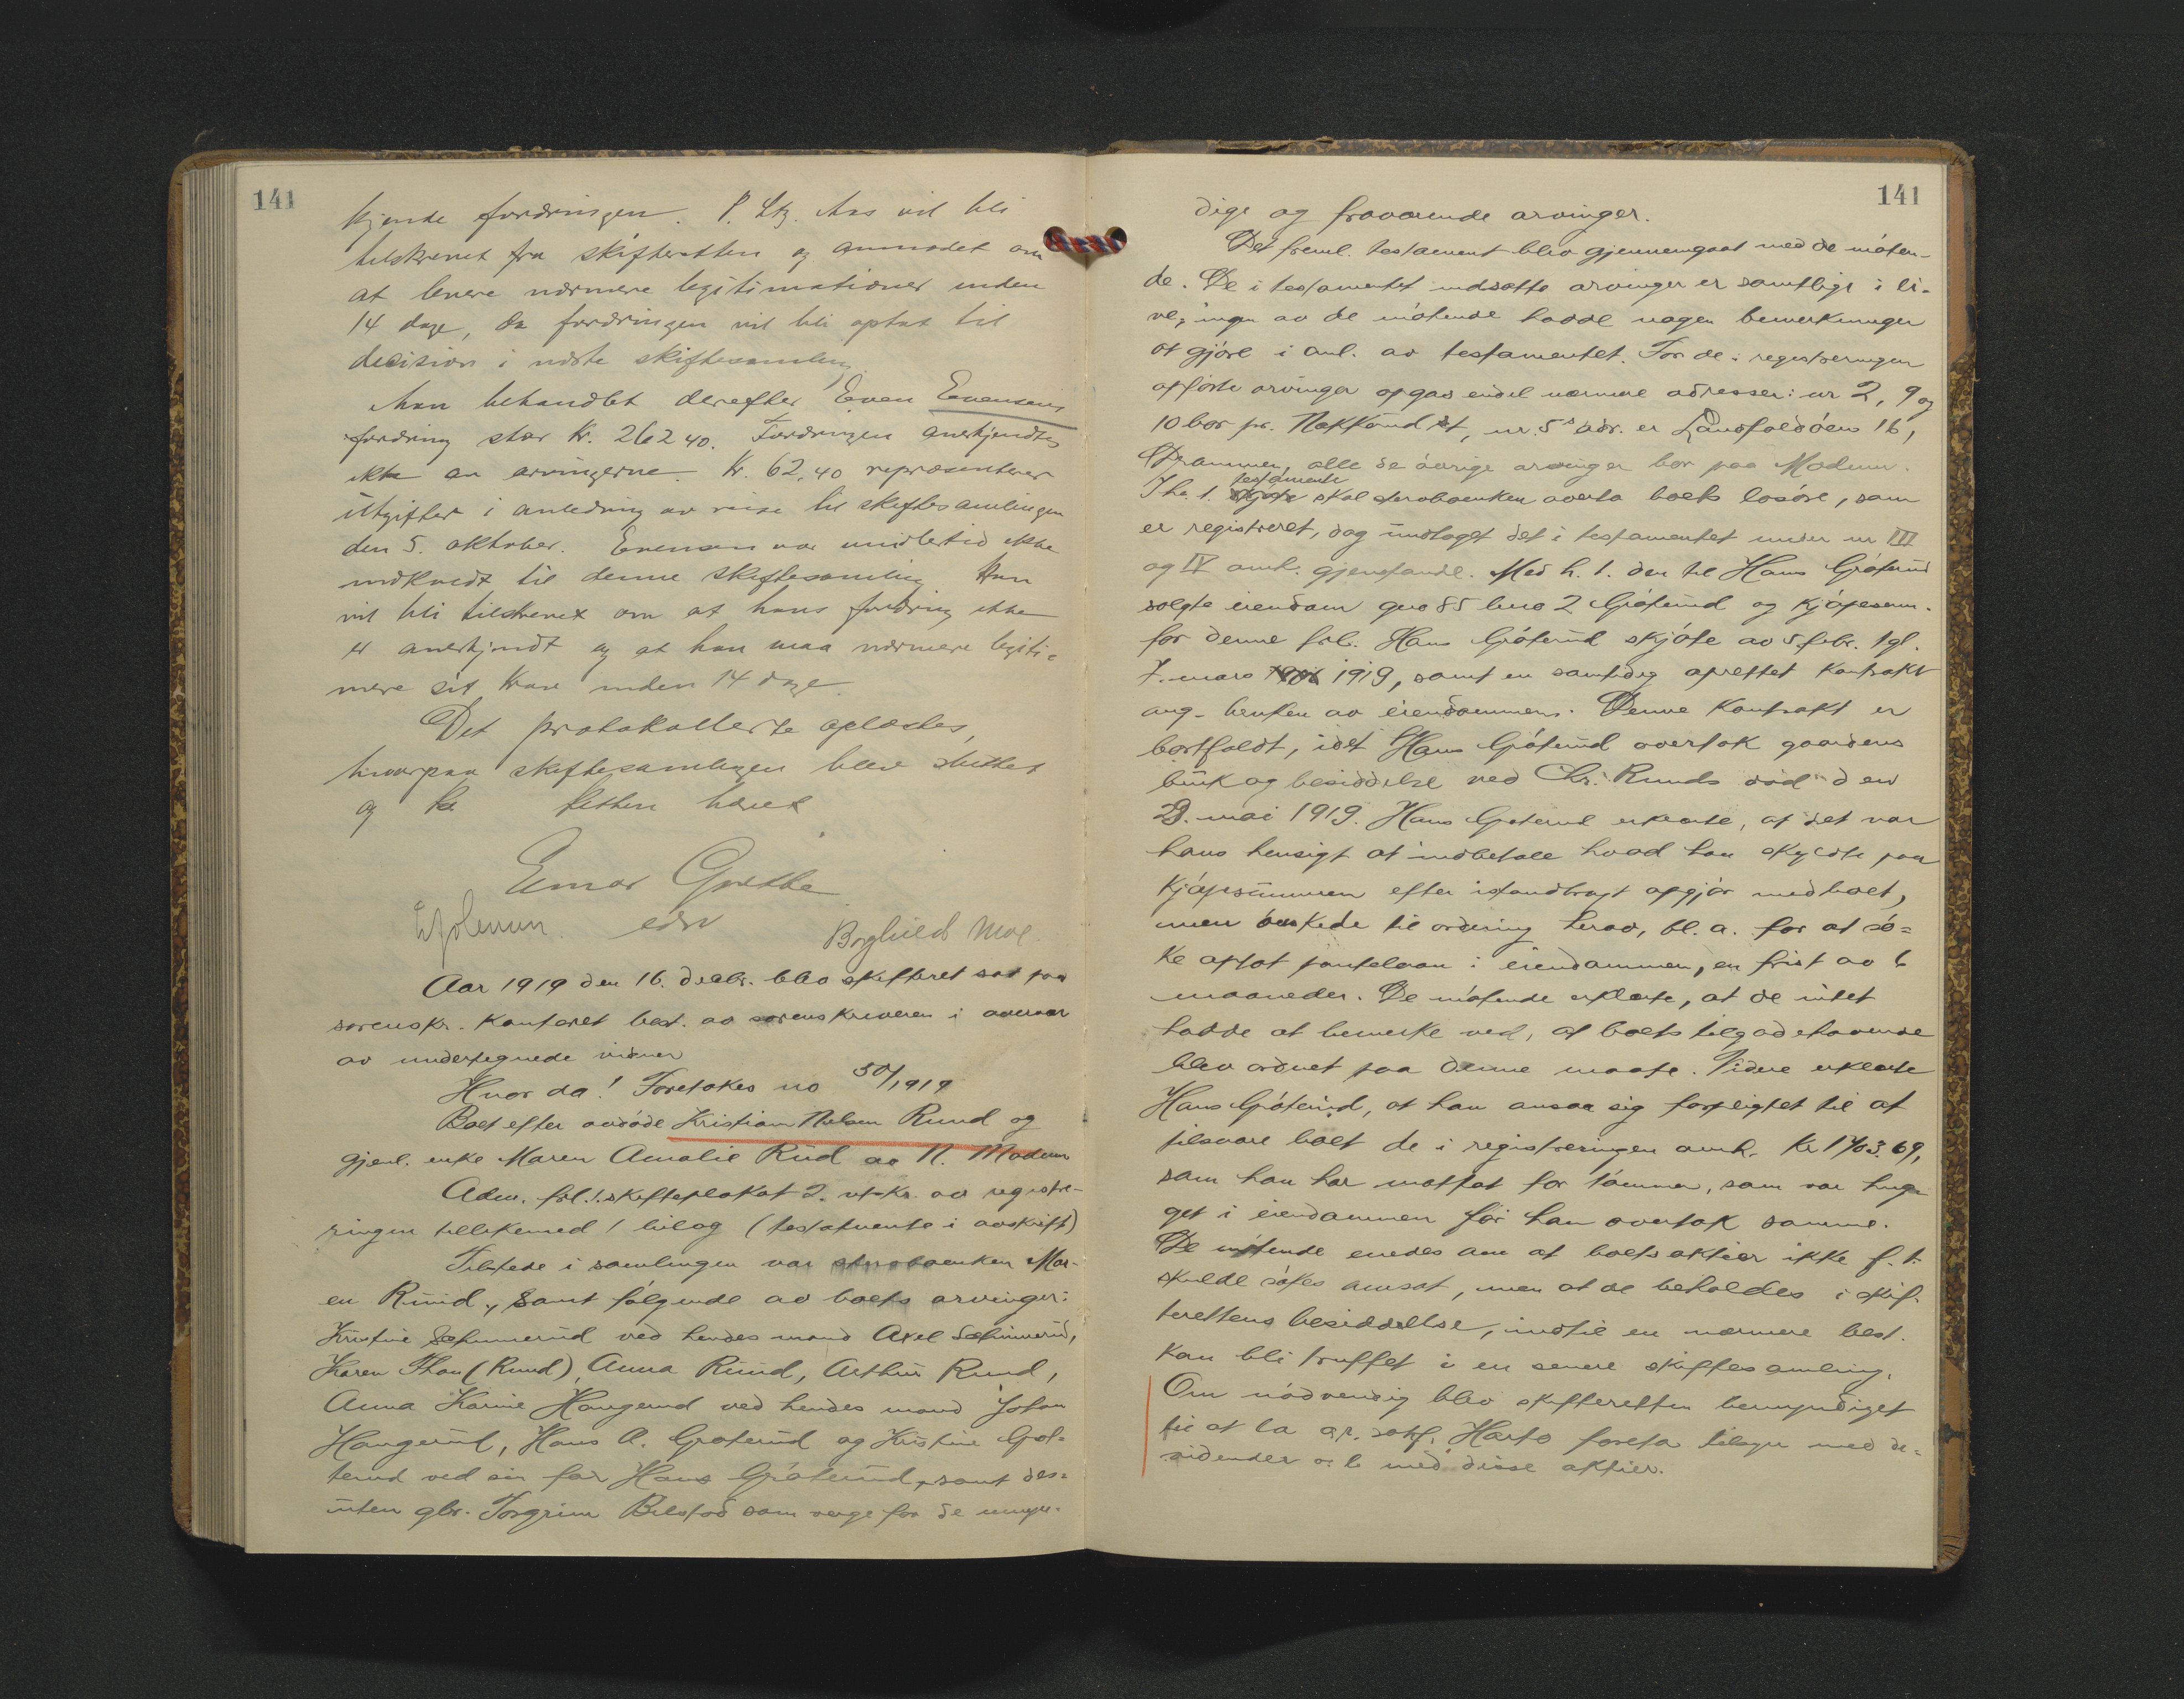 141
kjende fordringen. P. Ltz. Aas vil bli
tilskrevet fra skifteretten og anmodet om
at levere nærmere legitimationer inden
14 dage, da fordringen vil bli optat til
decision i næste skiftesamling.
Man behandlet derefter Even Evensens
fordring stor kr. 262 40. Fordringen anerkjendtes
ikke av arvingerne. Kr. 62,40 repræsenterer
utgifter i anledning av reise til skiftesamlingen
den 5. oktober. Evensen var imidlertid ikke
indkaldt til denne skiftesamling. Han
vil bli tilskrevet om at hans fordring ikke
er anerkjendt og at han maa nærmere legiti=
mere sit krav inden 14 dage.
Det protokollerte oplæstes,
hvorpaa skiftesamlingen blev sluttet
og retten hævet
Einar Grette
edsv
Borghild Moe.
Aar 1919 den 16. decbr. blev skifteret sat paa
sorenskr. kontoret best. av sorenskriveren i overvær
av undertegnede vidner
Hvor da! Foretokes no 50/1919
Boet efter avdøde Kristian Nilsen Ruud og
gjenl. enke Maren Amalie Ruud av N. Modum
Adm. frl. 1. skifteplakat 2. utskr. av registre-
ringen tillikemed 1 bilag (testamente i avskrift)
Tilstede i samlingen var sterboenken Mar-
en Ruud, samt følgende av boets arvinger:
Kristine ved hendes mand Axel
Karen Thon (Ruud), Anna Ruud, Arthur Ruud,
Anna Karine Haugerud ved hendes mand Johan
Haugerud, Hans A. Grøterud og Kristine Grø=
terud ved sin far Hans Grøterud, samt des=
uten gbr. Torgrim Bilstad som verge for de umyn-
141
dige og fraværende arvinger.
Det freml. testament blev gjennemgaat med de møten-
de. De i testamentet indsatte arvinger er samtlige i li-
ve, ingen av de møtende hadde nogen bemerkninger
at gjøre i anl. av testamentet. For de i registreringen
opførte arvinger opgas endel nærmere adresser: nr 2, 9 og
10 bor pr. Nakkerud st, nr. 5's adr. er Landfaldøen 16,
Drammen, alle de øvrige arvinger bor paa Modum.
I h. t. testamente skal sterboenken overta boets løsøre, som
er registreret, dog undtaget det i testamentet under nr III
og IV omh. gjenstande. Med h. t. den til Hans Grøterud
solgte eiendom gno 85 bno 2 Grøterud og kjøpesum.
for denne frl. Hans Grøterud skjøte av 5. febr. tgl.
7. mars 1919, samt en samtidig oprettet kontrakt
ang. bruken av eiendommen. Denne kontrakt er
bortfaldt, idet Hans Grøterud overtok gaardens
bruk og besiddelse ved Chr. Ruuds død den
23. mai 1919. Hans Grøterud erklærte, at det var
hans hensigt at indbetale hvad han skyldte paa
kjøpesummen efter istandbragt opgjør med boet,
men ønskede til ordning herav, bl. a. for at sø=
ke optat pantelaan i eiendommen, en frist av 6
maaneder. De møtende erklærte, at de intet
hadde at bemerke ved, at boets tilgodehavende
blev ordnet paa denne maate. Videre erklærte
Hans Grøterud, at han ansaa sig forpligtet til at
tilsvare boet de i registreringen omh. Kr 1703.69,
som han har mottat for tømmer, som var hug-
get i eiendommen før han overtok samme.
De møtende enedes om at boets aktier ikke f. t.
skulde søkes omsat, men at de beholdes i skif-
terettens besiddelse, indtil en nærmere best.
kan bli truffet i en senere skiftesamling.
Om nødvendig blev skifteretten bemyndiget
til at la o.r. sakf. Harto foreta tilsyn med di-
videnden o. l. med disse aktier.